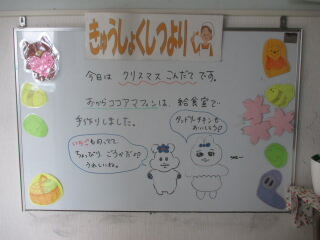 きゅうしょくしつより
今日は クリスマス こんだて です。
おから ココアマフィンは、給食室で
手作りしました。
タンドリーチキンも
おいしそう♡
いちごものってて
ちょっぴり ごうかだね
うれしいね。